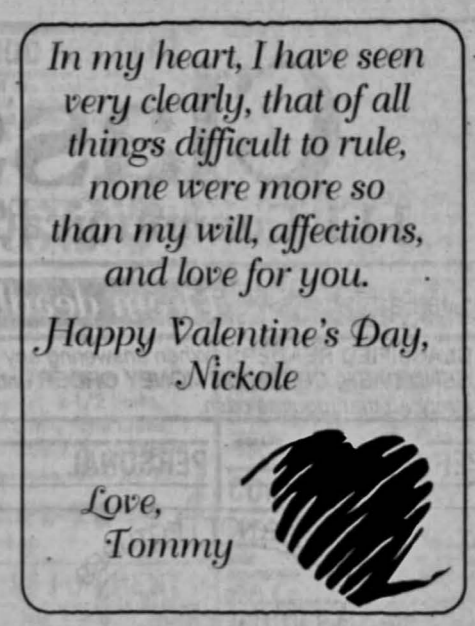 In my heart, I have seen
very clearly, that of all
things difficult to rule,
none were more so
than my will, affections,
and love for you.
Happy Valentine's Day,
Nickole
Love,
Tommy
PERSONAL